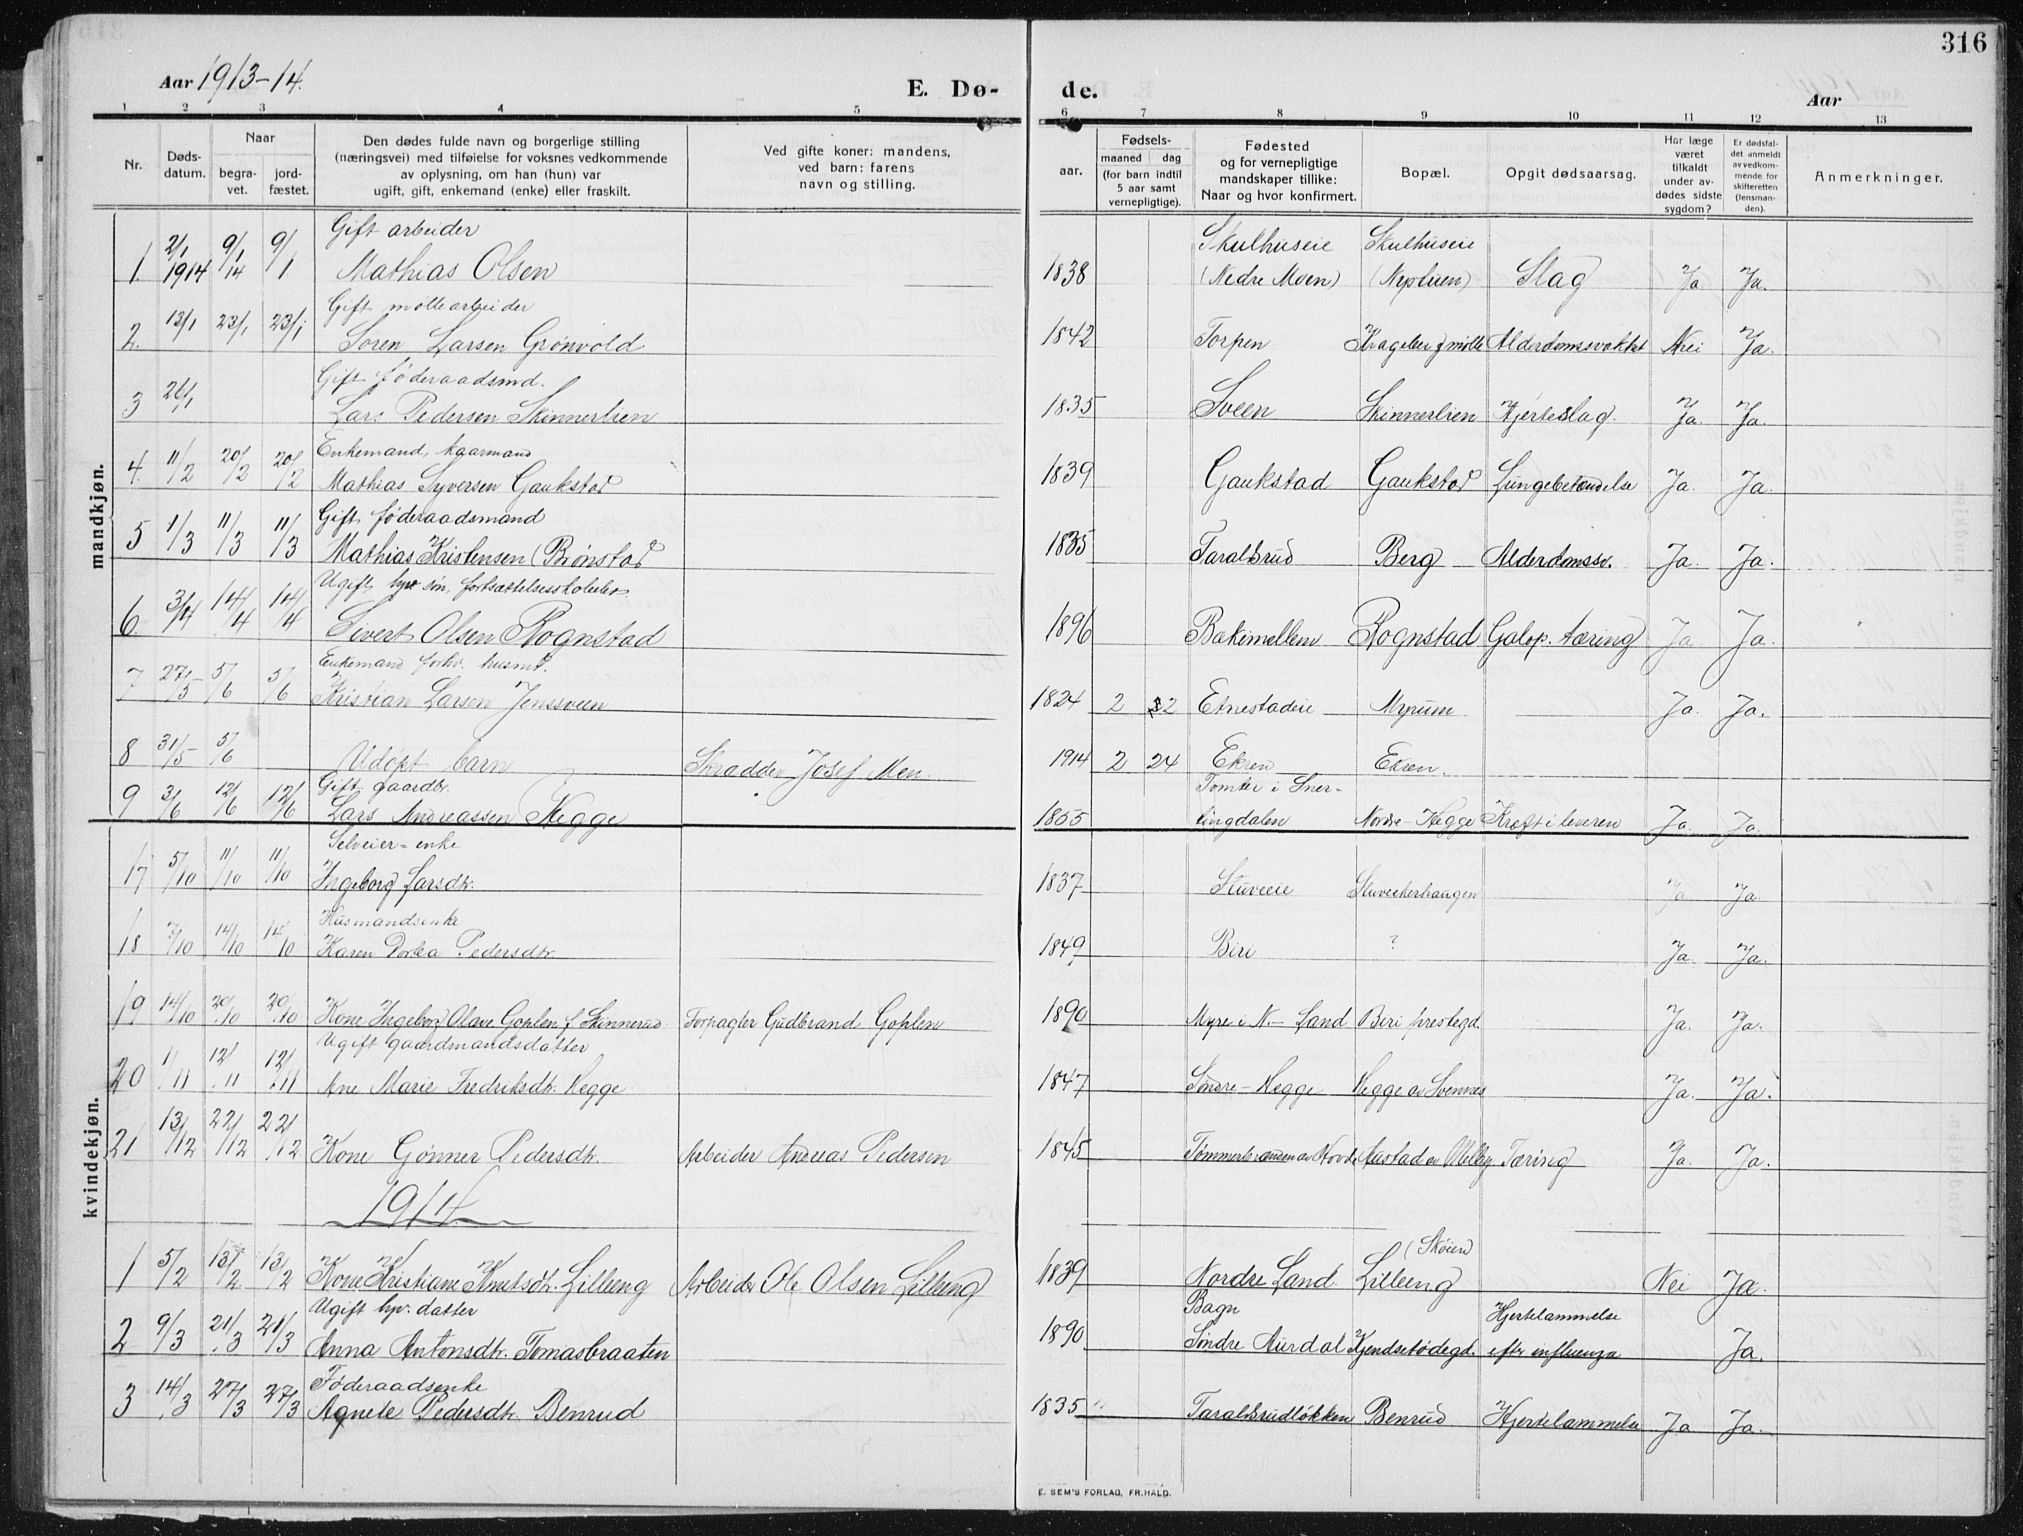 316
Aar 1913-14.
E. Dø-
de.
Aar
1 2 3 4 5 6 7 8 9 10 11 12 13
Nr.
Døds-
datum.
Naar
begra-
vet.
jord-
fæstet.
Den dødes fulde navn og borgerlige stilling
(næringsvei) med tilføielse for voksnes vedkommende
av oplysning, om han (hun) var
ugift, gift, enkemand (enke) eller fraskilt.
Ved gifte koner: mandens,
ved barn: farens
navn og stilling.
Fødsels-
aar.
maaned dag
(for barn indtil
5 aar samt
vernepligtige).
Fødested
og for vernepligtige
mandskaper tillike:
Naar og hvor konfirmert.
Bopæl.
Opgit dødsaarsag.
Har læge
været
tilkaldt
under av-
dødes sidste
sygdom?
Er dødsfal-
det anmeldt
av vedkom-
mende for
skifteretten
(lensman-
den).
Anmerkninger.
mandkjøn.
Gift arbeider Skulhuseie Skulhuseie
1. 2/1 1914 9/1 14 9/1 Mathias Olsen 1838 (Nedre Moen) (Neptuen) Slag Ja Ja.
Gift møllearbeider
2. 13/1 23/1 23/1 Søren Larsen Grønvold 1842 Torpen mølle Alderdomssvakhet Nei Ja.
Gift føderaadsmd.
3 26/1 Lars Pedersen Skinnerlien 1835 Sveen Skinnerlien Hjerteslag. Ja. Ja.
Enkemand, kaarmand
4. 11/2 20/2 20/2 Mathias Syversen Gaukstad 1839 Gaukstad Gaukstad Lungebetændelse Ja. Ja.
Gift føderaadsmand
5 1/3 11/3 11/3 Mathias Kristensen (Brønstad 1835 Taralsrud Berg Alderdomssv. Ja. Ja.
Ugift, søn, fortsættelsesskoleelev
6. 3/4 14/4 14/4 Sivert Olsen Rognstad 1896 Bakimellem Rognstad Galop. tæring Ja Ja.
Enkemand forhv. husmd.
7 27/5 5/6 5/6 Kristian Larsen Jenssveen 1824 2 22 Etnestadeie Myrum Ja. Ja.
8 31/5 5/6 Udøpt barn Skrædder Josef Men. 1914 2 24 Ekren Ekren.
Gift gaardbr. Tomter i Sner-
9 3/6 12/6 12/6 Lars Andreassen Hegge 1855 lingdalen Nordre-Hegge Kræft i leveren Ja. Ja.
kvindekjøn.
Selveier-enke
17 5/10 11/10 11/10 Ingeborg Larsdtr. 1837 Stuveeie Stuveekerhaugen Ja Ja.
Husmandsenke
18 7/10 14/10 14/10 Karen Dorlea Pedersdtr. 1849 Biri ? Ja. Ja.
19 14/10 20/10 20/10 Kone Ingeborg Olave Goplen f. Skinnerud Forpagter Gudbrand Goplen 1890 Myre i N.-Land Biri prestegd. Ja. Ja.
Ugift gaardmandsdatter
20 1/11 12/11 12/11 Ane Marie Fredriksdtr. Hegge 1847 Søndre-Hegge Hegge av Svennes Ja. Ja.
21 13/12 22/12 22/12 Kone Gønner Pedersdtr. Arbeider Andreas Pedersen 1845 Austad av Melby Tæring Ja. Ja.
1914
(Skøien)
1 5/2 13/2 13/2 Kone Kristiane Knutsdtr. Lilleeng Arbeider Ole Olsen Lilleeng 1839 Nordre Land Lilleeng Nei Ja.
Ugift hpv. datter Bagn Hjertelammelse
2 9/3 21/3 21/3 Anna Antonsdtr. Tomasbraaten 1890 Søndre Aurdal Kjendsetødegd. efter influenza Ja.
Føderaadsenke
3 14/3 27/3 27/3 Agnete Pedersdtr. Benrud 1835 Taralsrudløkken Benrud Hjertelammelse Ja Ja.
E. SEM'S FORLAG, FR.HALD.